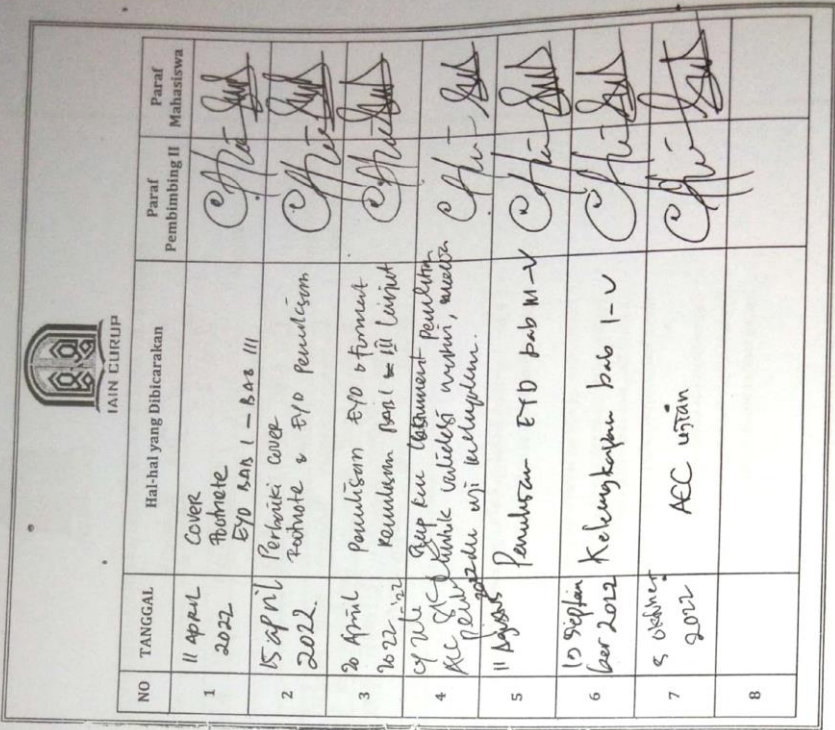 IAIN CURUP
NO TANGGAL Hal-hal yang Dibicarakan Paraf Pembimbing II Paraf Mahasiswa
1 11 APRIL 2022
Cover
Footnote
EYD BAB I - BAB III
2 15 april 2022.
Perbaiki cover
Footnote & EYD penulisan
3 20 April 2022
Penulisan EYD & format
Penulisan BAB I III lanjut
4
ACC SK
instrument penelitian
untuk validasi
uji
5 11 Agustus 2022
Penulisan EYD bab III-V
6 Septem
ber 2022
Kelengkapan bab I-V
7 Oktober 2022
ACC ujian
8